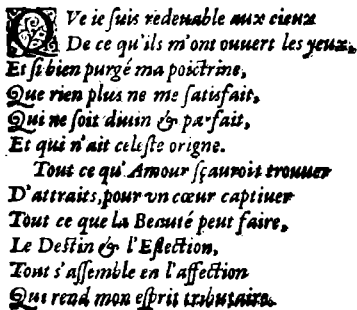 QVe ie suis redeuable aux cieux
De ce qu'ils m'ont ouuert les yeux,
Et si bien purgé ma poictrine,
Que rien plus ne me satisfait,
Qui ne soit diuin & parfait,
Et qui n'ait celeste origne.
Tout ce qu'Amour sçauroit trouuer
D'attraits, pour vn cœur captiuer
Tout ce que la Beauté peut faire,
Le Destin & l'Eslection,
Tout s'assemble en l'affection
Qui rend mon esprit tributaire.